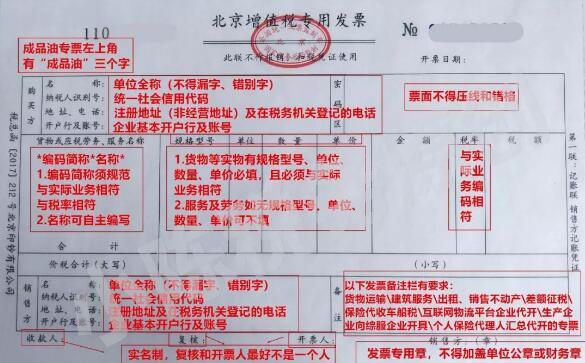 110
北京增值税专用发票
№
此联不作报销、扣税凭证使用
开票日期：
成品油专票左上角
有“成品油”三个字
购买方
名称：
纳税人识别号：
地址、电话：
开户行及账号：
单位全称（不得漏字、错别字）
统一社会信用代码
注册地址（非经营地址）及在税务机关登记的电话
企业基本开户行及账号
密码区
票面不得压线和错格
货物或应税劳务、服务名称
规格型号
单位
数量
单价
金额
税率
税额
*编码简称*名称*
1.编码简称须规范
与实际业务相符
与税率相符
2.名称可自主编写
1.货物等实物有规格型号、单位、
数量、单价必填，且必须与实际
业务相符
2.服务及劳务如无规格型号、单位、
数量、单价可不填
与实际业务编码相符
合计
价税合计（大写）
（小写）
销售方
名称：
纳税人识别号：
地址、电话：
开户行及账号：
单位全称（不得漏字、错别字）
统一社会信用代码
注册地址及在税务机关登记的电话
企业基本开户行及账号
备注
以下发票备注栏有要求：
货物运输\建筑服务\出租、销售不动产\差额征税\
保险代收车船税\互联网物流平台企业代开\生产企
业向综服企业开具\个人保险代理人汇总代开的专票
收款人：
复核：
开票人：
实名制，复核和开票人最好不是一个人
发票专用章，不得加盖单位公章或财务章
税总函〔2017〕212号北京印钞有限公司
第一联：记账联 销售方记账凭证